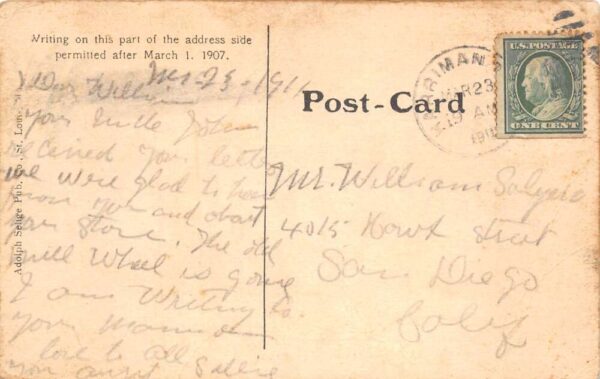 Writing on this part of the address side
permitted after March 1. 1907.
Mr 23 - 1911
Dear William
your Uncle John
received your letter
we were glad to hear
from you and about
your store. The old
mill Wheel is going
I am Writing to
your
love to all
you aunt Sallie
Adolph Selige Pub. Co., St. Louis
Post-Card
MAR 23
AM
U.S. POSTAGE
ONE CENT
Mr. William
4015 Hawk Street
San Diego
Calif